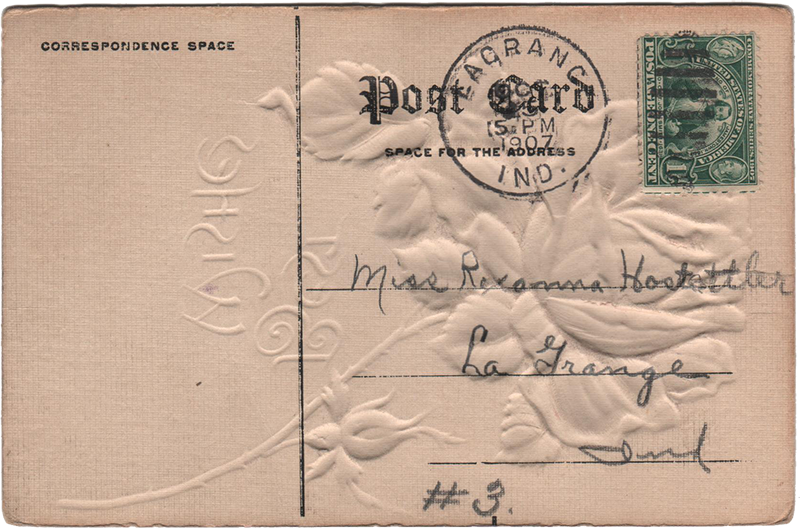 CORRESPONDENCE SPACE
Post Card
SPACE FOR THE ADDRESS
LAGRANG
5 PM
1907
IND.
Miss Rexanna Hostettler
La Grange
Ind
#3.